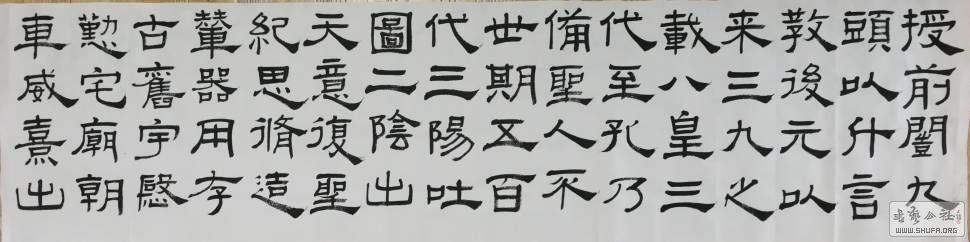 授前闓九
頭以什言
教後元以
来三九之
載八皇三
代至孔乃
備聖人不
世期五百
代三陽吐
圖二陰出
天意復聖
紀思脩造
輦器用存
古舊宇慇
懃宅廟朝
車威熹出
书艺公社
WWW.SHUFA.ORG